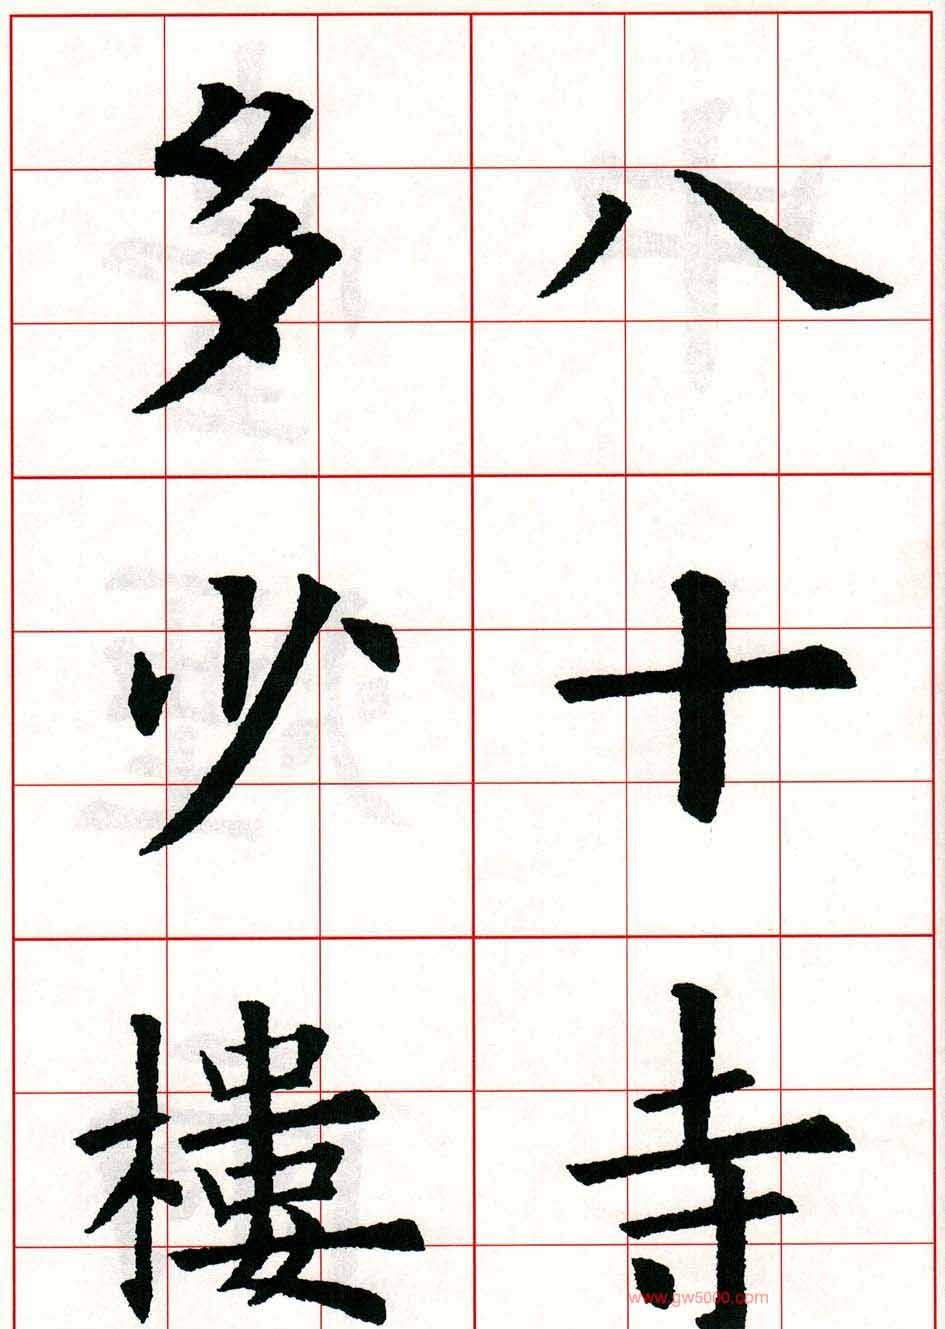 八十寺
多少樓
www.gw5000.com